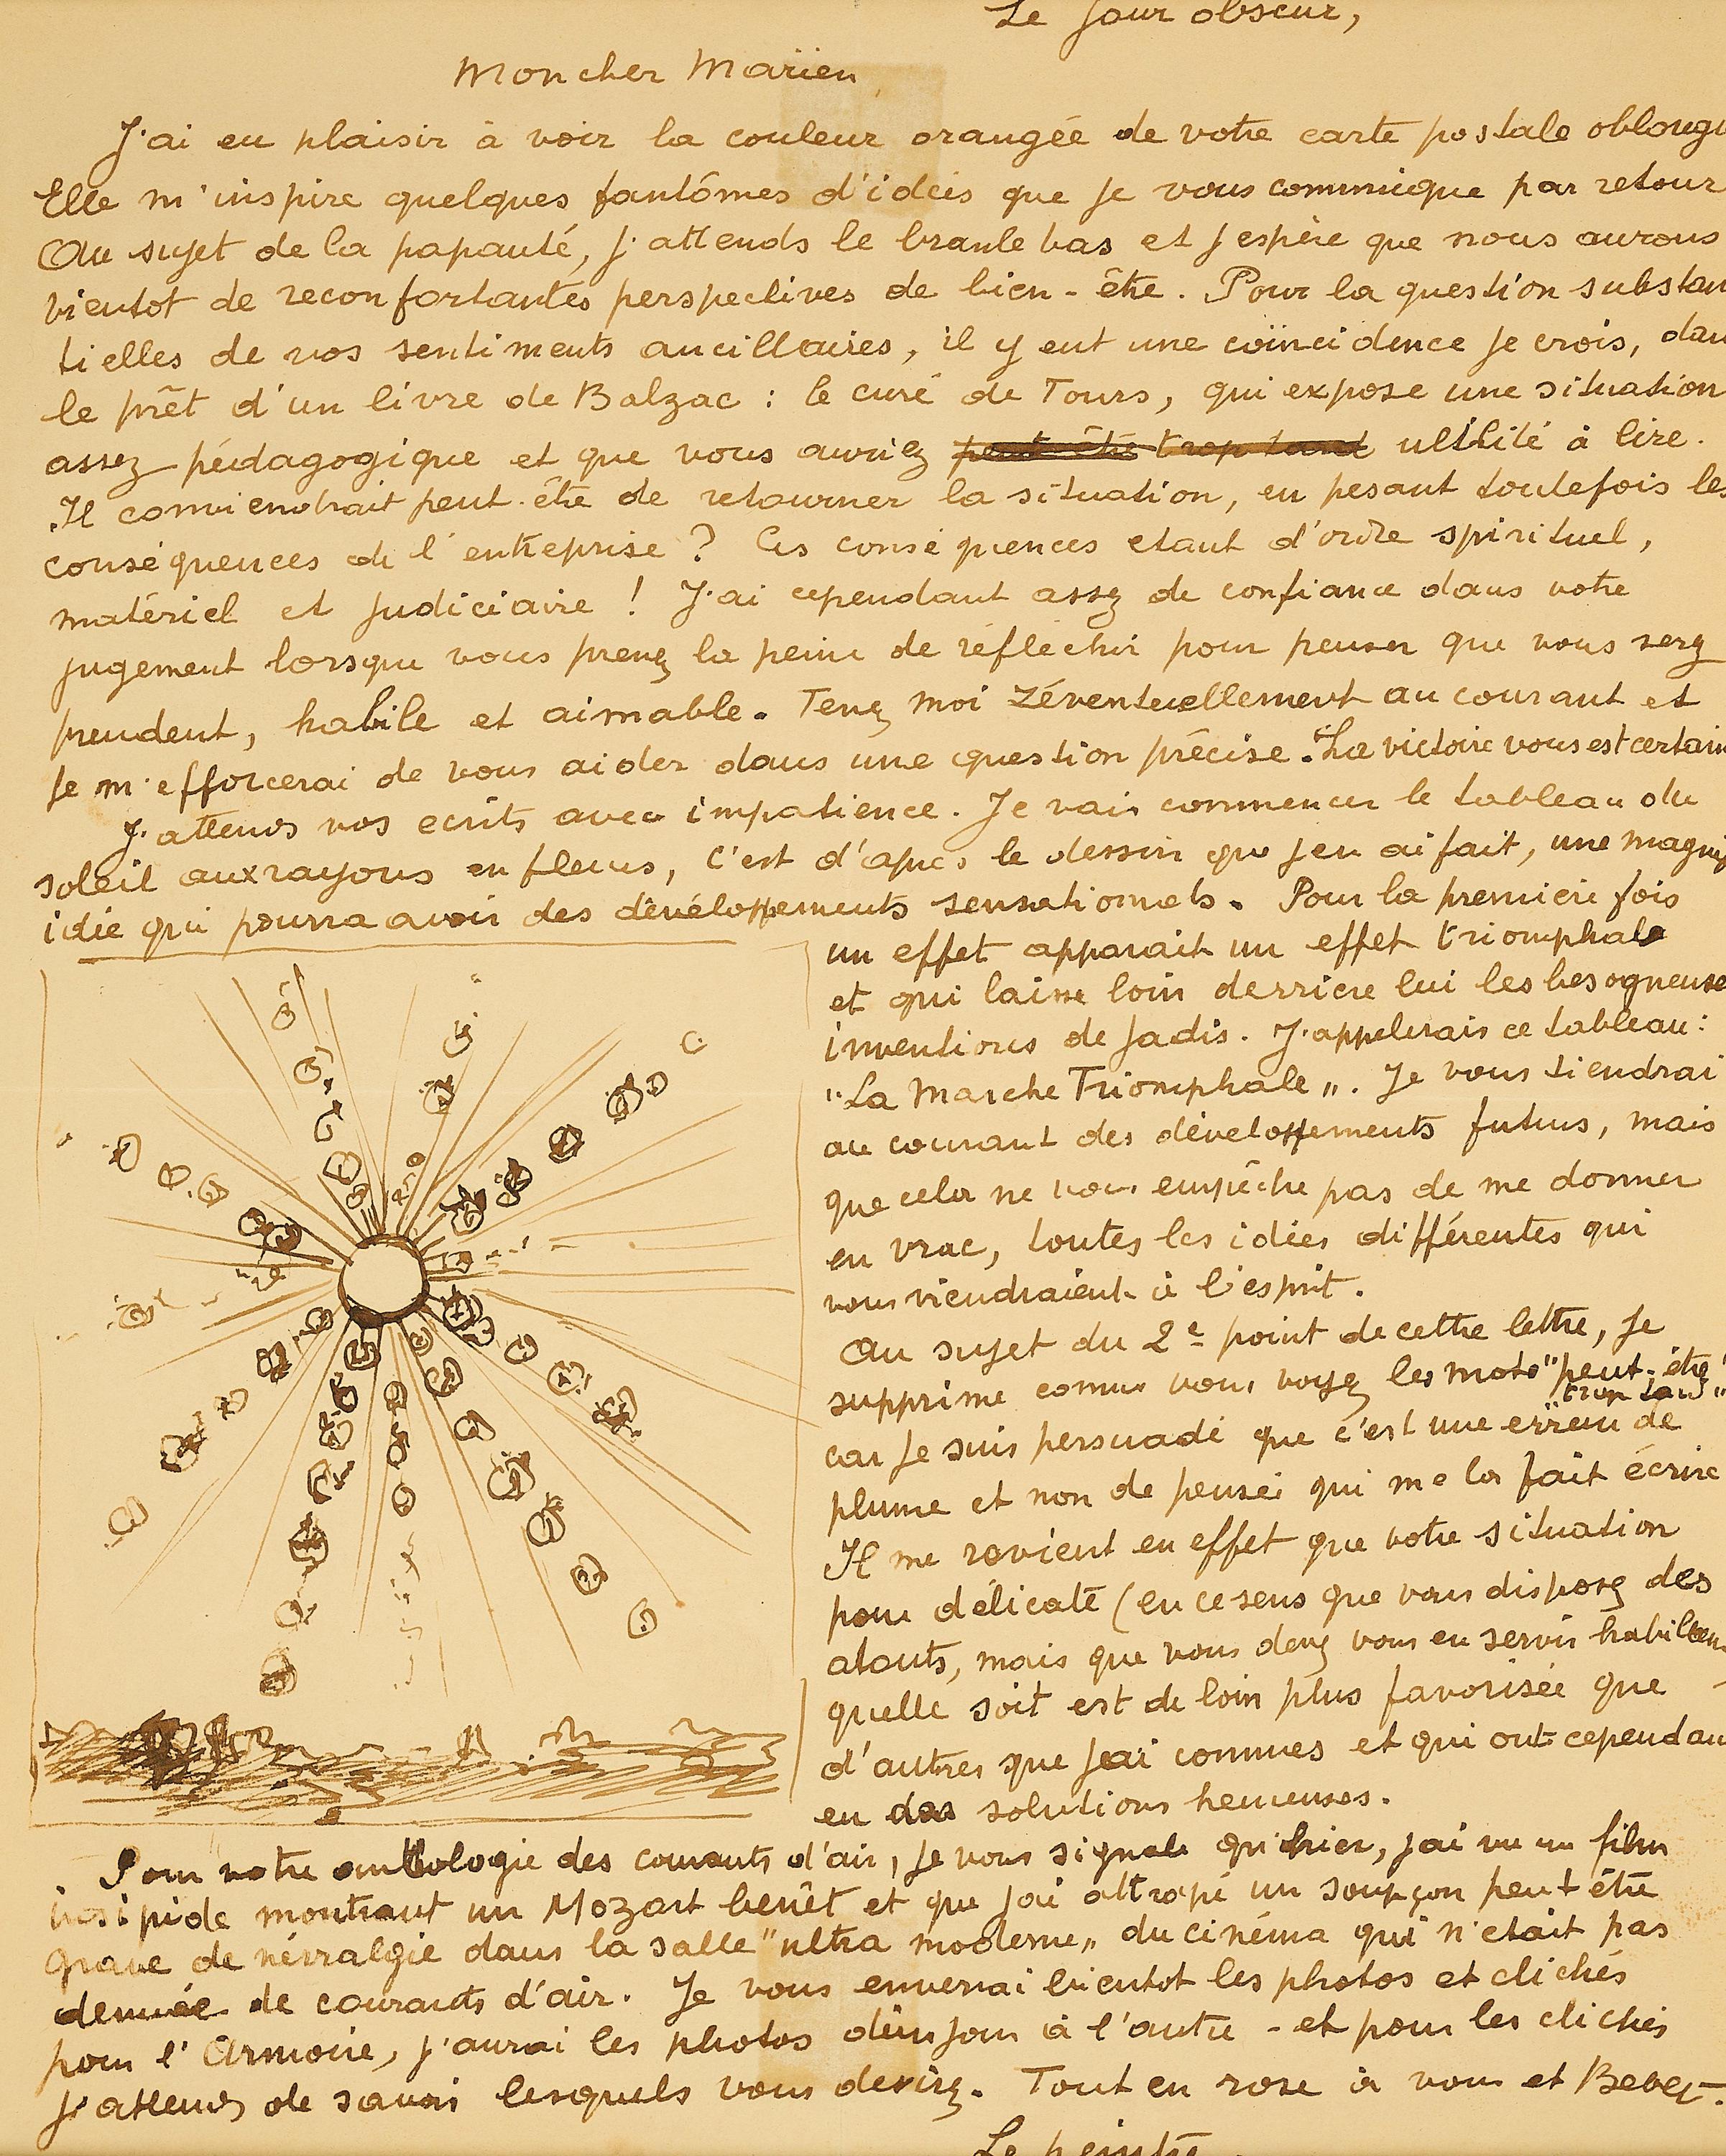 Le jour obscur,
Mon cher Mariën
J'ai eu plaisir à voir la couleur orangée de votre carte postale oblongu
Elle m'inspire quelques fantômes d'idées que je vous communique par retour
Au sujet de la papauté, j'attends le branle bas et j'espère que nous aurons
bientot de reconfortantes perspectives de bien-être. Pour la question substan
tielles de vos sentiments ancillaires, il y eut une coïncidence je crois, dan
le prêt d'un livre de Balzac : le curé de Tours, qui expose une situation
assez pédagogique et que vous auriez peut-être trop tard utilité à lire.
Il conviendrait peut-être de retourner la situation, en pesant toutefois les
conséquences de l'entreprise ? Ces conséquences etant d'ordre spirituel,
matériel et judiciaire ! J'ai cependant assez de confiance dans votre
jugement lorsque vous prenez la peine de réfléchir pour penser que vous serez
prudent, habile et aimable. Tenez moi zéventuellement au courant et
je m'efforcerai de vous aider dans une question précise. La victoire vous est certain
J'attends vos ecrits avec impatience. Je vais commencer le tableau du
soleil aux rayons en fleurs, c'est d'après le dessin que j'en ai fait, une magnif
idée qui pourra avoir des développements sensationnels. Pour la premiere fois
un effet apparait un effet triomphale
et qui laisse loin derriere lui les besogneuse
inventions de jadis. J'appelerais ce tableau :
"La Marche Triomphale". Je vous tiendrai
au courant des développements futurs, mais
que cela ne vous empêche pas de me donner
en vrac, toutes les idées différentes qui
vous viendraient à l'esprit.
Au sujet du 2e point de cette lettre, je
supprime comme vous voyez les mots "peut-être
trop tard"
car je suis persuadé que c'est une erreur de
plume et non de pensée qui me la fait écrire
Il me revient en effet que votre situation
pour délicate (en ce sens que vous disposez des
atouts, mais que vous devez vous en servir habilem
quelle soit est de loin plus favorisée que
d'autres que j'ai connues et qui ont cependan
eu des solutions heureuses.
Pour notre anthologie des courants d'air, je vous signale qu'hier, j'ai vu un film
insipide montrant un Mozart benêt et que j'ai attrapé un soupçon peut être
grave de névralgie dans la salle "ultra moderne" du cinéma qui n'etait pas
denuée de courants d'air. Je vous enverrai bientot les photos et clichés
pour l'Armoire, j'aurai les photos d'un jour à l'autre - et pour les clichés
j'attends de savoir lesquels vous desirez. Tout en rose à vous et Beber.
Le peintre.